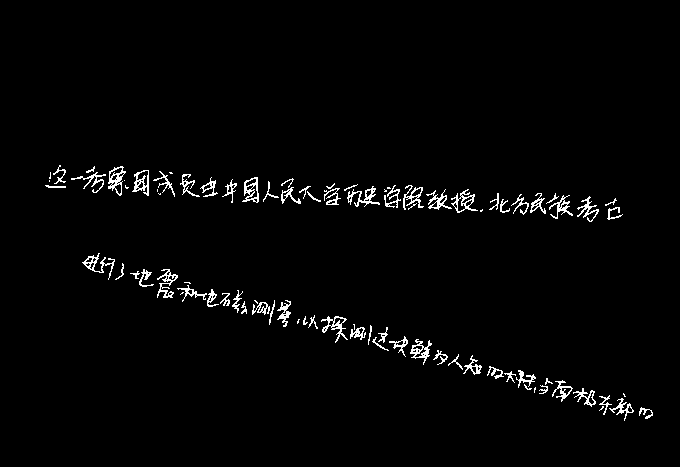 这一考察团成员由中国人民大学历史学院教授、北方民族考古
进行了地震和地磁测量,以探测这块鲜为人知的大陆与南极东部的